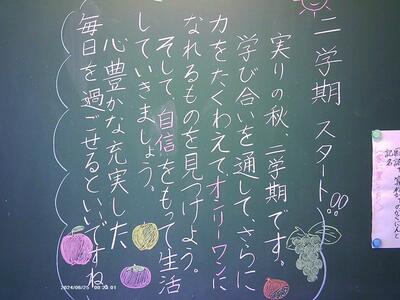 二学期 スタート!!
実りの秋、二学期です。
学び合いを通して、さらに
力をたくわえてオンリーワンに
なれるものを見つけよう。
そして、自信をもって生活
していきましょう。
心豊かな充実した
毎日を過ごせるといいですね
2024/08/25